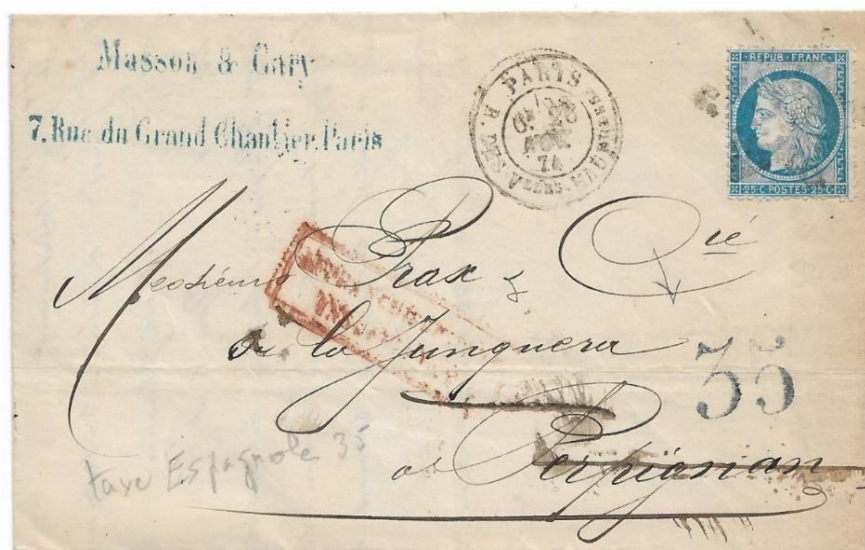 Masson & Gary
7, Rue du Grand Chantier. Paris
PARIS
R. DES VLLES-HAUDTTES
NOV.
74
REPUB · FRANC
25·C·POSTES·25·C
Messieurs Prax & Cié
a la Junquera
35
a Perpignan
taxe Espagnole 35